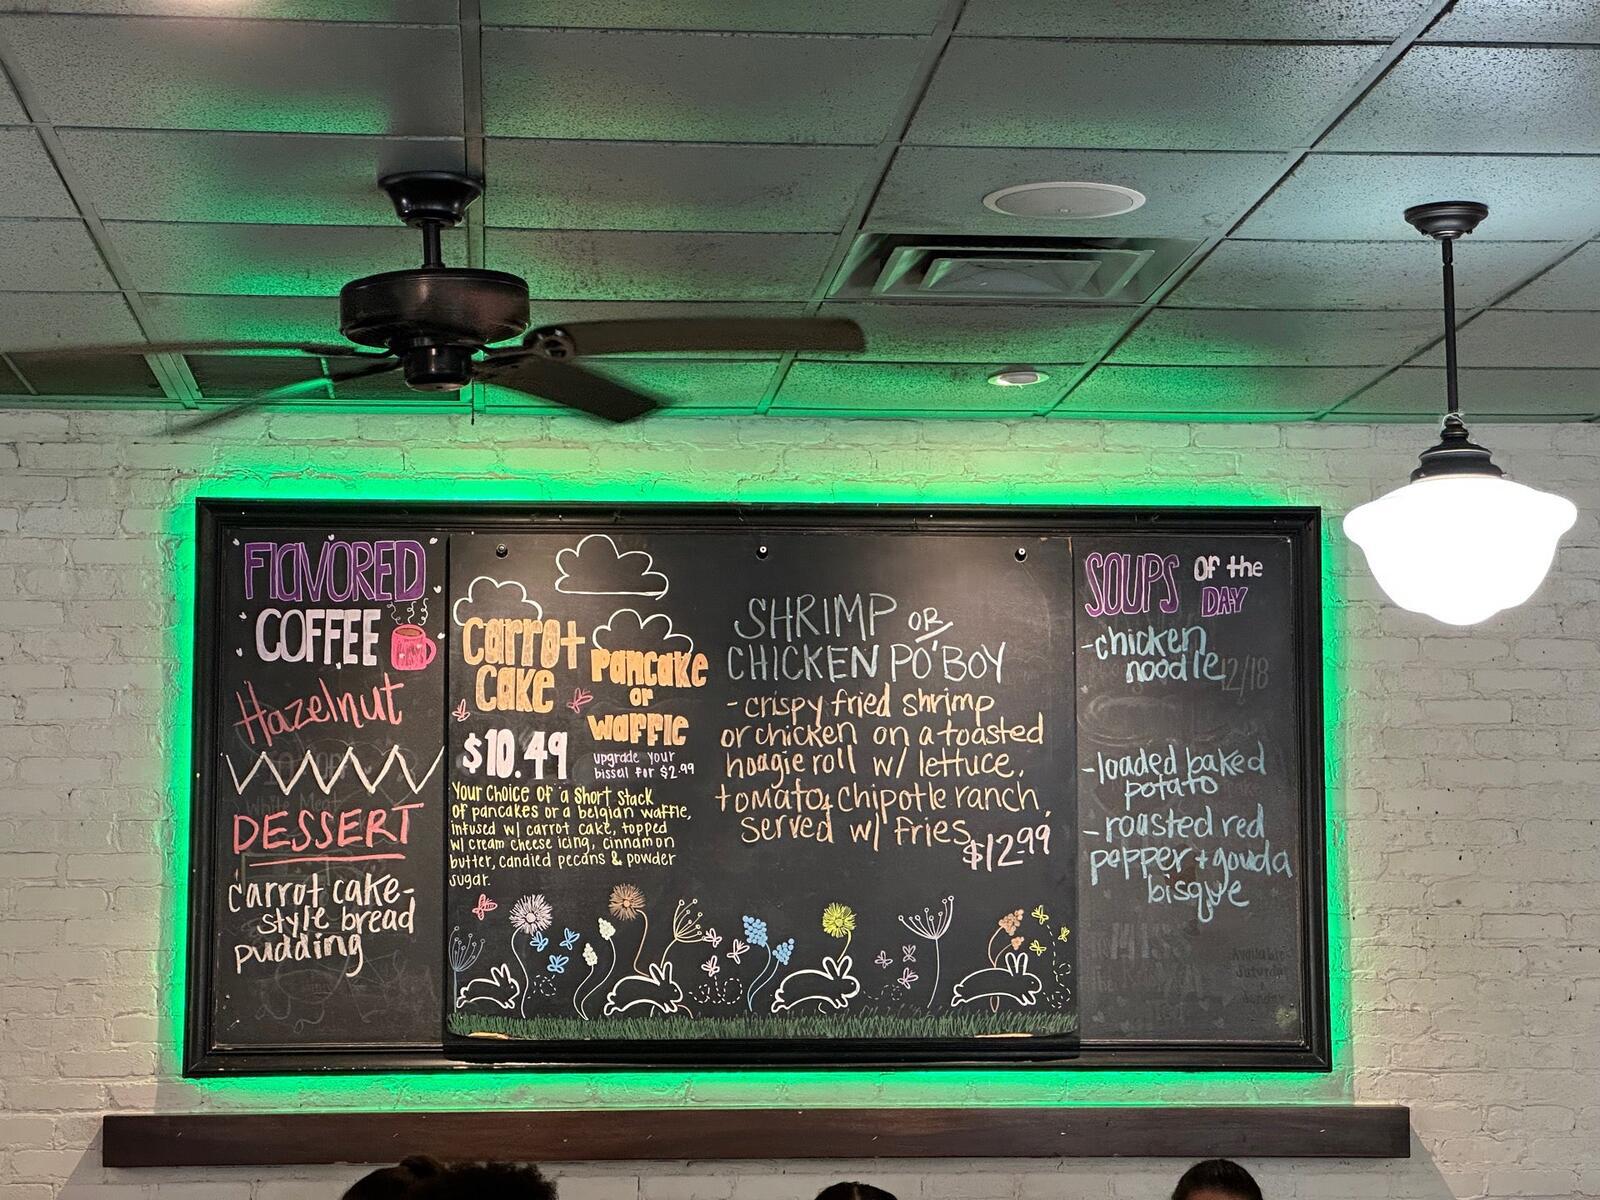 FlavoRED
COFFEE
Hazelnut
DESSERT
carrot cake-
style bread
pudding
carrot
cake
pancake
or
waffle
$10.49
upgrade your
bissell for $2.99
Your choice of a short stack
of pancakes or a belgian waffle,
infused w/ carrot cake, topped
w/ cream cheese icing, cinnamon
butter, candied pecans & powder
sugar.
SHRIMP OR
CHICKEN PO'BOY
- crispy fried shrimp
or chicken on a toasted
hoagie roll w/ lettuce,
tomato, chipotle ranch,
served w/ fries
$12.99
SOUPS of the
DAY
-chicken
noodle
12/18
-loaded baked
potato
- roasted red
pepper + gouda
bisque
Miss
Available
Saturday
Sunday